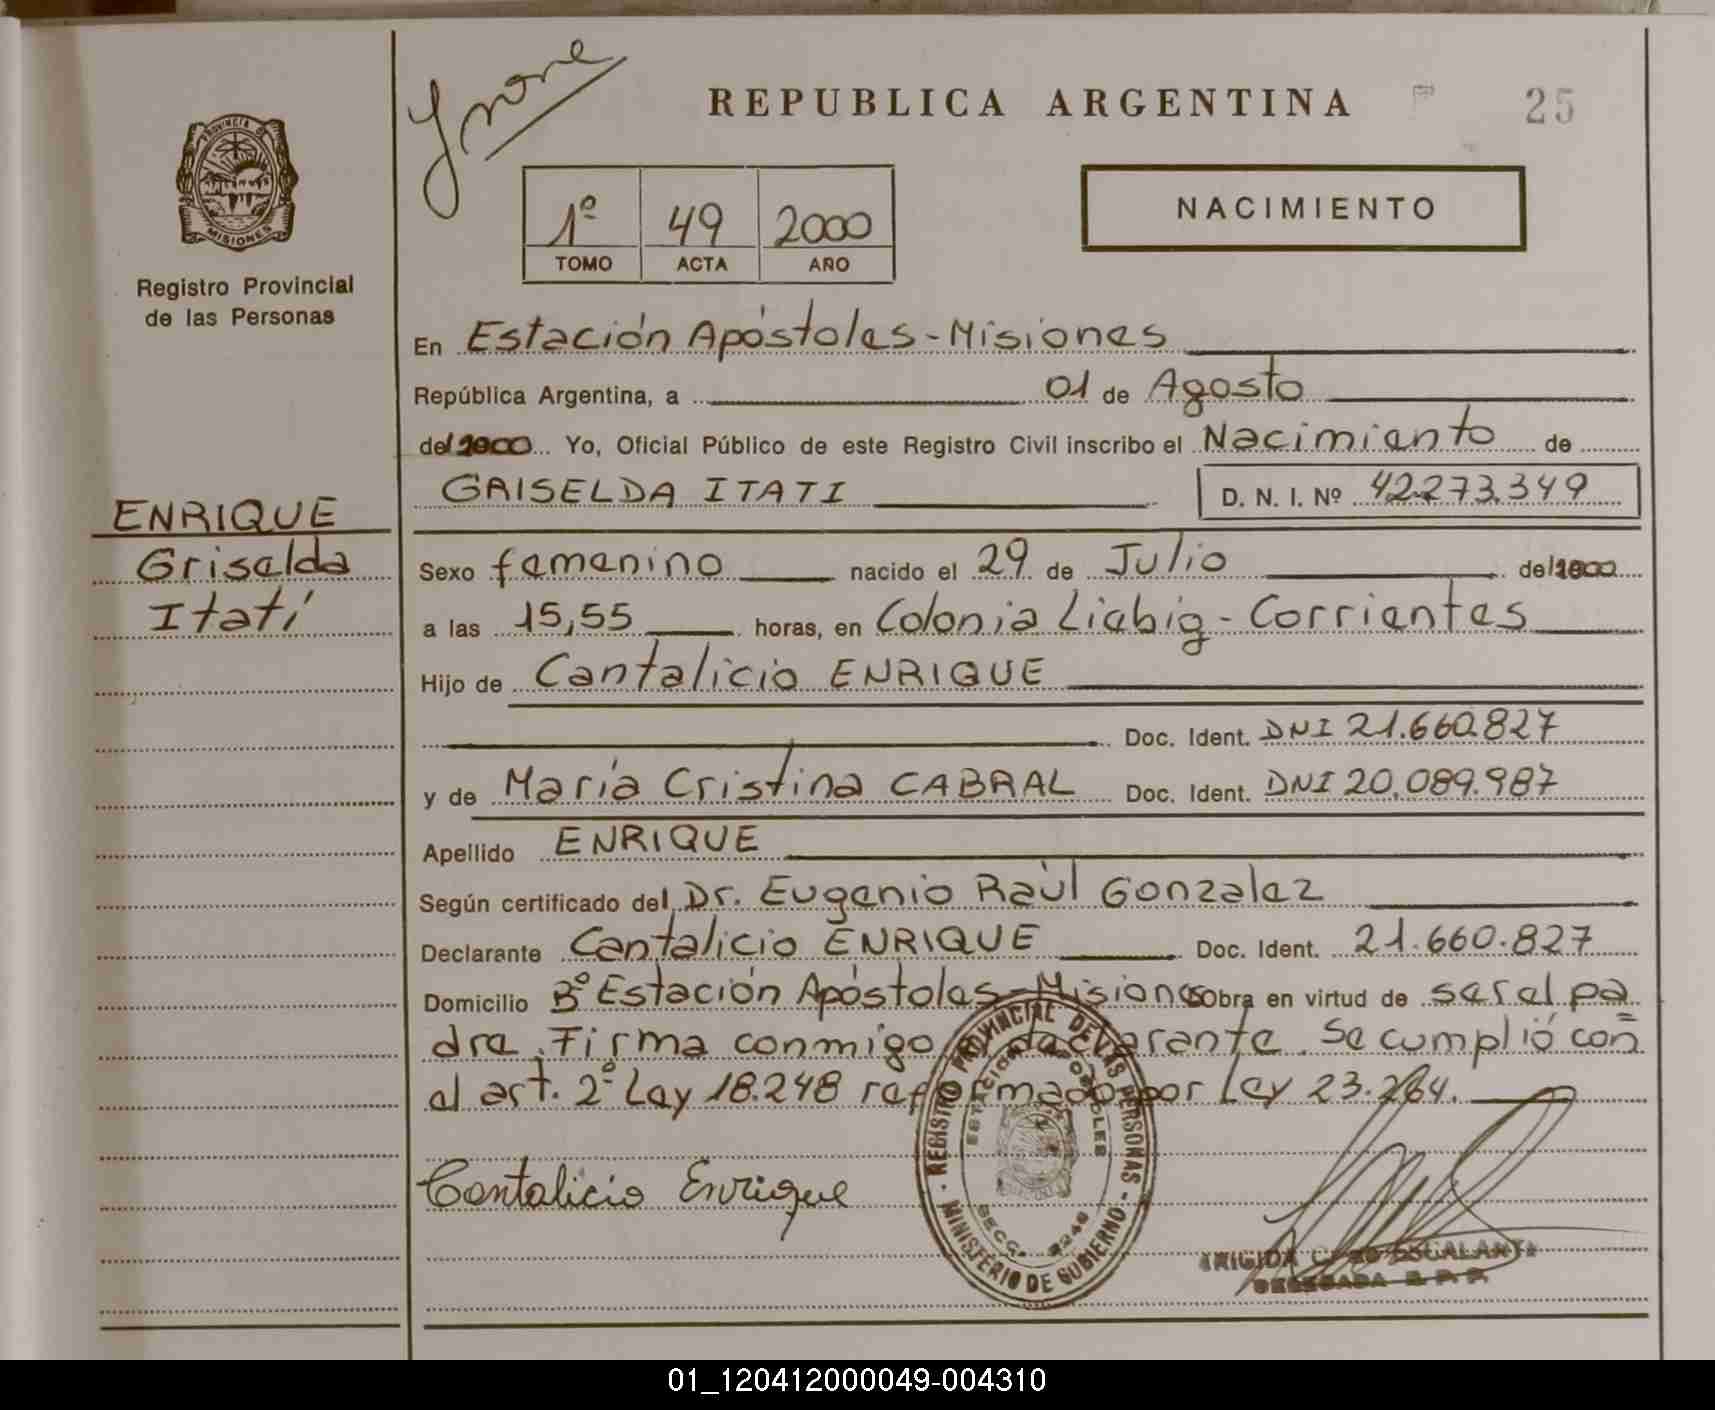 Irone
REPUBLICA ARGENTINA 25
PROVINCIA D MISIONES
Registro Provincial
de las Personas
1º 49 2000
TOMO ACTA AÑO
NACIMIENTO
En Estación Apóstoles-Misiones
República Argentina, a 01 de Agosto
del 2000 Yo, Oficial Público de este Registro Civil inscribo el Nacimiento de
GRISELDA ITATI D. N. I. Nº 42.273.349
ENRIQUE
Griselda
Itatí
Sexo femenino nacido el 29 de Julio del 2000
a las 15,55 horas, en Colonia Liebig - Corrientes
Hijo de Cantalicio ENRIQUE
Doc. Ident. DNI 21.660.827
y de María Cristina CABRAL Doc. Ident. DNI 20.089.987
Apellido ENRIQUE
Según certificado del Dr. Eugenio Raúl Gonzalez
Declarante Cantalicio ENRIQUE Doc. Ident. 21.660.827
Domicilio Bº Estación Apóstoles-Misiones obra en virtud de ser el pa
dre. Firma conmigo el declarante. Se cumplió con
el art. 2º Ley 18.248 reformado por Ley 23.264.
Cantalicio Enrique
REGISTRO PROVINCIAL DE LAS PERSONAS - MINISTERIO DE GOBIERNO -
ESTACION APOSTOLES
SECC.
ESCALANTE
DELEGADA R. P. P.
01_120412000049-004310